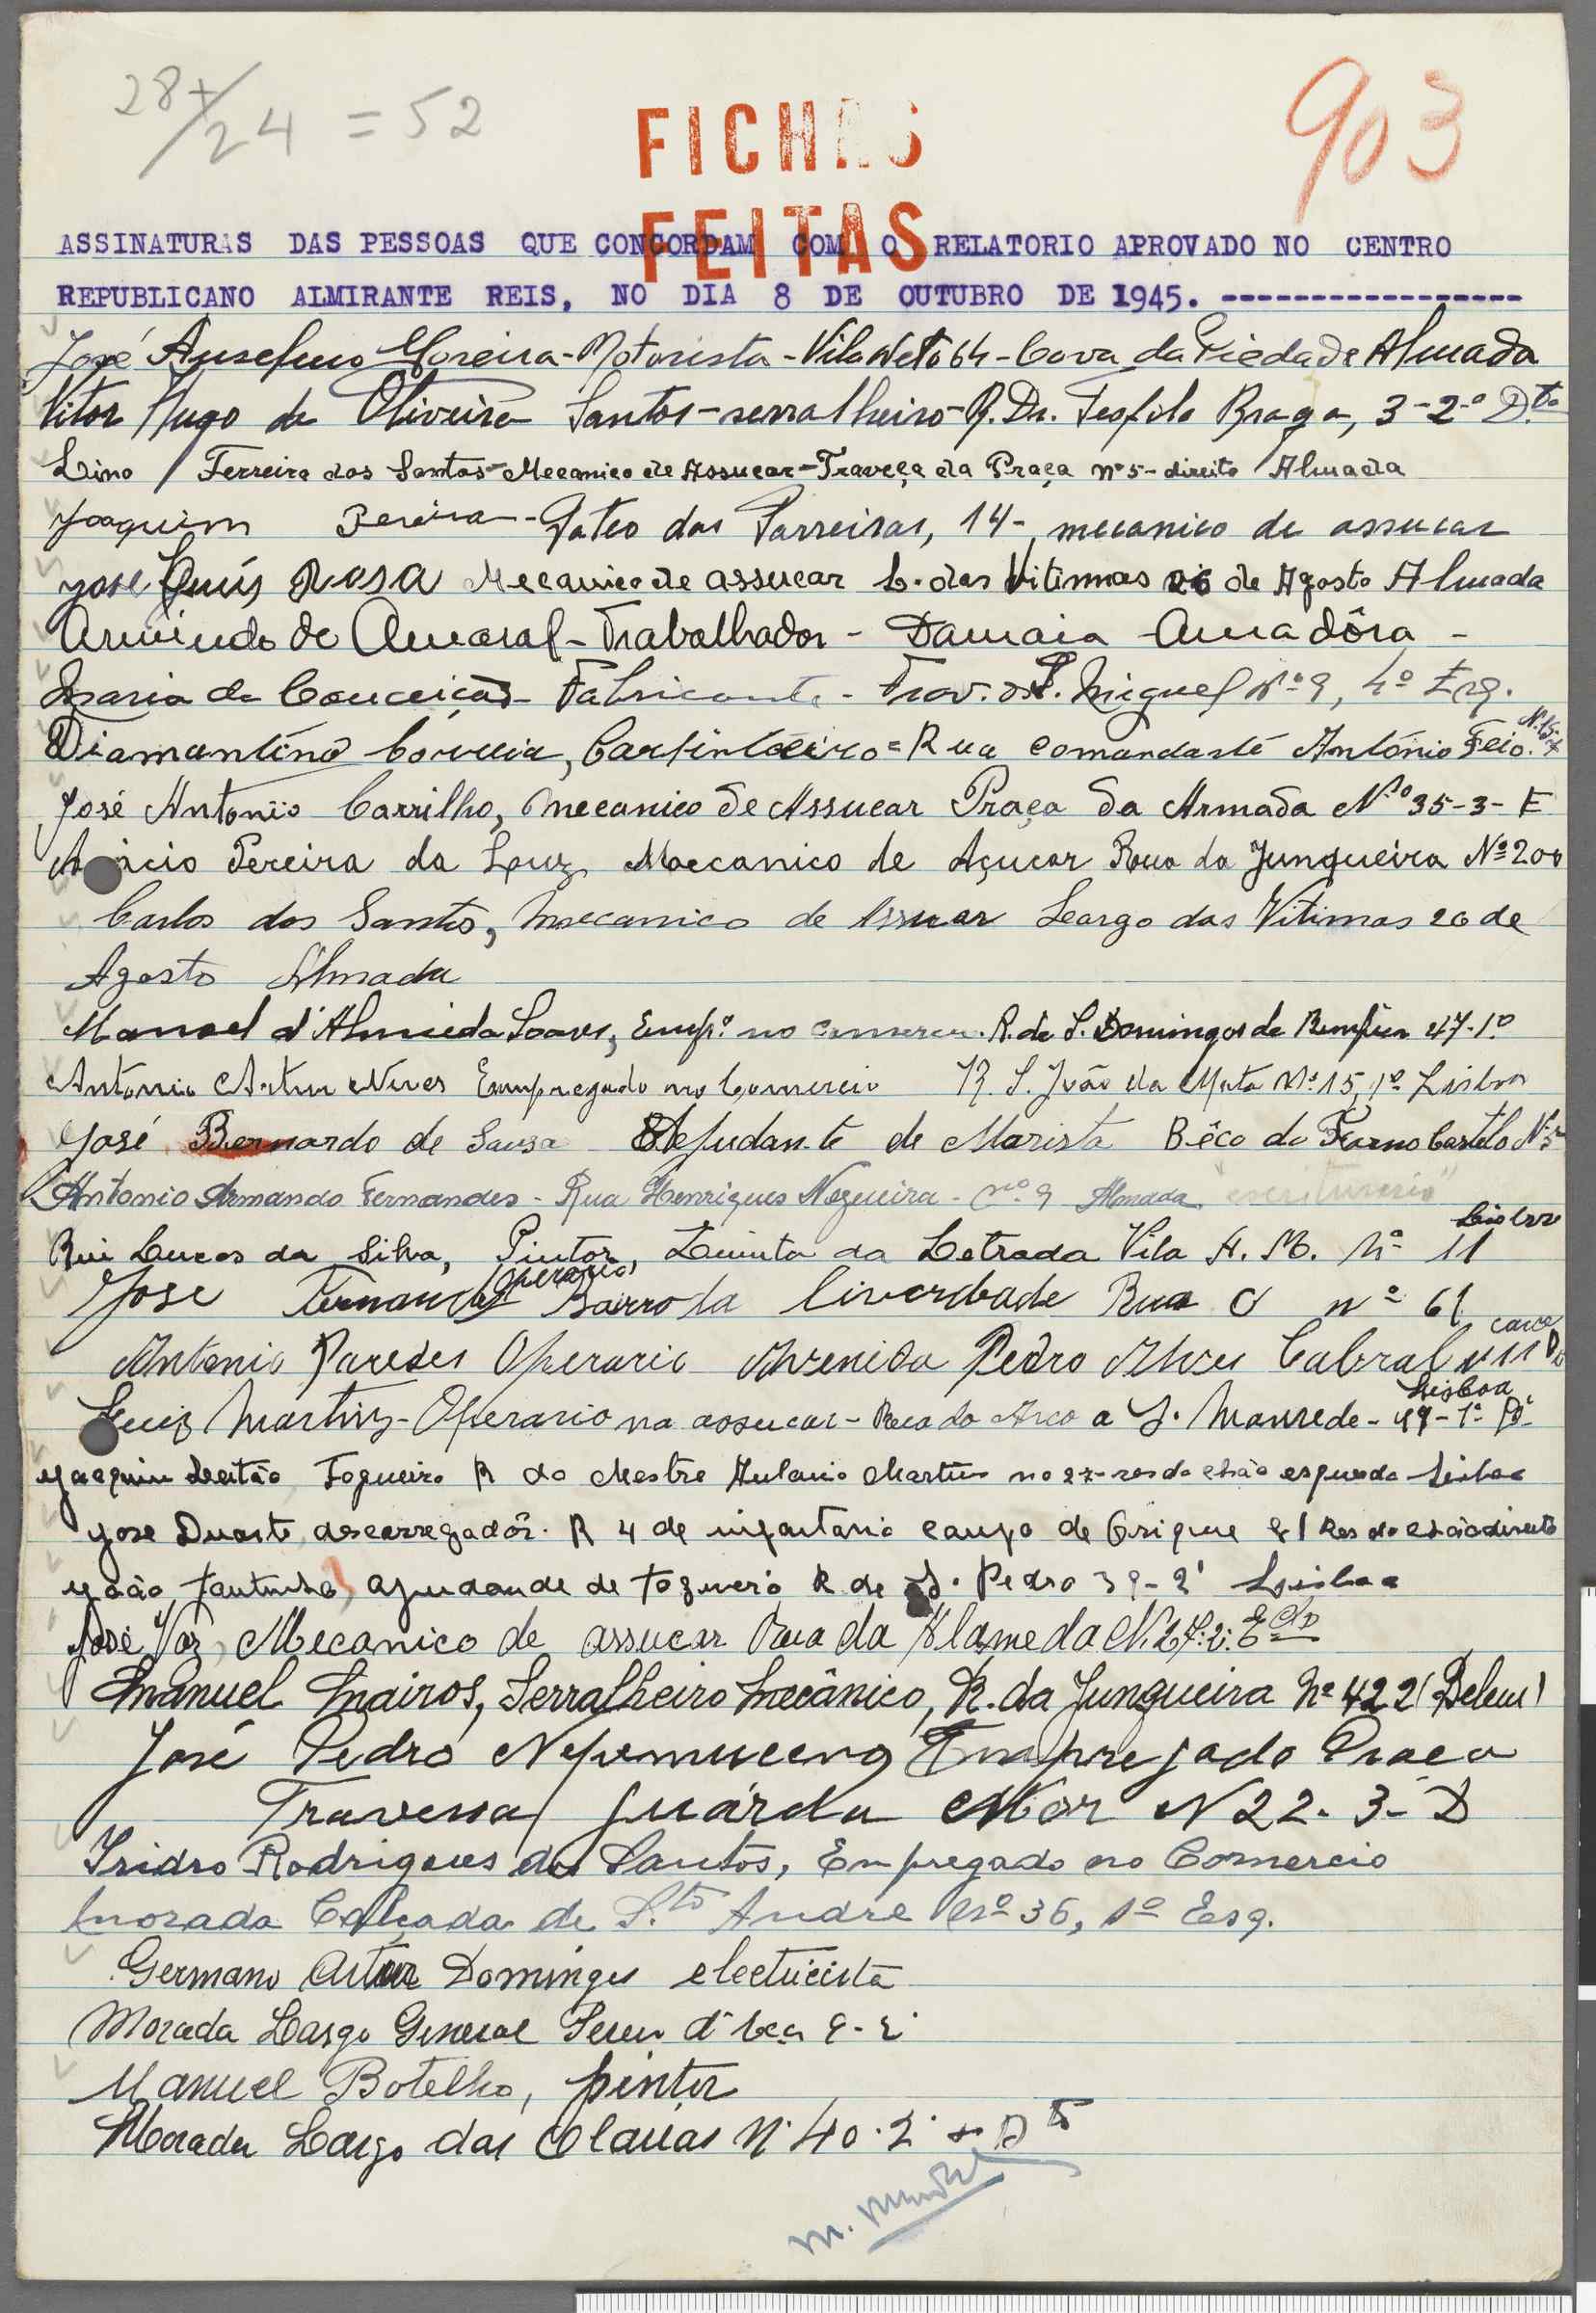 28+/24 = 52
903
FICHAS
FEITAS
ASSINATURAS DAS PESSOAS QUE CONCORDAM COM O RELATORIO APROVADO NO CENTRO
REPUBLICANO ALMIRANTE REIS, NO DIA 8 DE OUTUBRO DE 1945. -----------------
José Anselmo Moreira - Motorista - Vila Neto 64 - Cova da Piedade Almada
Vitor Hugo de Oliveira Santos - serralheiro - R. Dr. Teofilo Braga, 3-2-º Dto
Lino Ferreira dos Santos - Mecanico de Assucar - Traveça da Praça nº 5 - direito Almada
Joaquim Pereira - Pateo das Parreiras, 14-, mecanico de assucar
José Luís Rosa Mecanico de assucar L. das Vitimas 26 de Agosto Almada
Armindo do Amaral - Trabalhador - Damaia - Amadôra -
Maria da Conceição - Fabricante - Trav. de S. Miguel Nº 9, 4º Esq.
Diamantíno Correia, Carpinteiro = Rua Comandante António Feio. N. 15
José Antonio Carrilho, Mecanico de Assucar Praça da Armada Nº 35-3-E
Pereira da Luz, Maecanico de Açucar Rua da Junqueira Nº 200
Carlos dos Santos, Mecanico de Assucar Leargo das Vitimas 26 de
Agosto Almada
Manoel d'Almeida Soares, Empº. no Comercio. R. de S. Domingos de Bemfica 47-1º
Antonio Artur Neves Empregado no Comercio R. S. João da Mata Nº 15, 1º Lisboa
José Bernardo de Sousa Ajudante de Marista Bêco do Forno Castelo Nº 5
Antonio Armando Fernandes - Rua Henriques Nogueira - nº 9 Almada "escriturario"
Rui Lucas da Silva, Pintor, Quinta da Letrada Vila A. M. Nº 11 Lisboa
José Fernandes Operario, Bairro da liverdbade Rua O nº 61
Antonio Paredes Operario Avenida Pedro Alves Cabral
Luiz Martins - Operario na assucar - Rua do Arco a S. Mamede - 49-1º Dº Lisboa
Joaquim Leitão Fogueiro R do Mestre Antonio Martins no 27-res do chão esquerdo Lisboa
José Duarte, descarregadôr. R 4 de infantaria campo de Orique 81 Res do chão direito
João Fontinha, ajudande de fogueiro R de S. Pedro 39-2º Lisboa
José Vaz, Mecanico de assucar Rua da Alameda N. 27. 2. Eqdo
Manuel Mairos, Serralheiro Mecânico, R. da Junqueira nº 422 (Belem)
José Pedro Nepomuceno Empregado Praça
Travessa Guárda Mór N 22-3-D
Isidro Rodrigues dos Santos, Empregado no Comercio
morada Calçada de Sto André nº 36, 1º Esq.
Germano Artur Domingus electricista
Morada Largo General Pereira d'Eça 9-2º
Manuel Botelho, pintor
Morada Largo das Olaias N. 40. 2. Dto